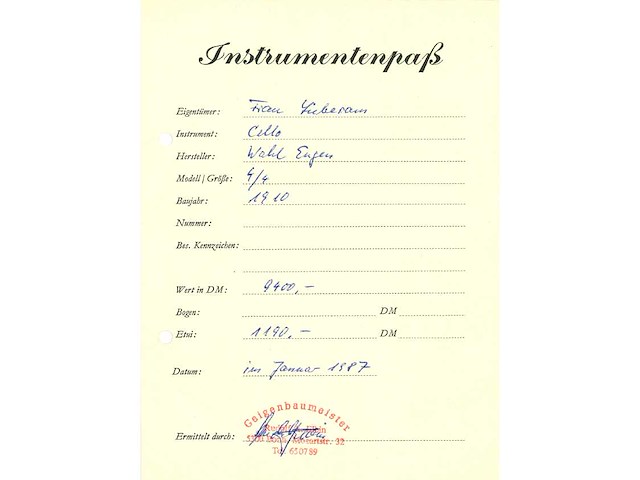 Instrumentenpaß
Eigentümer: Frau
Instrument: Cello
Hersteller: Wahl Eugen
Modell/Größe: 4/4
Baujahr: 1910
Nummer:
Bes. Kennzeichen:
Wert in DM: 9400,-
Bogen: DM
Etui: 1190,- DM
Datum: im Januar 1987
Geigenbaumeister
Ermittelt durch: Motorstr. 32
Tel. 650789